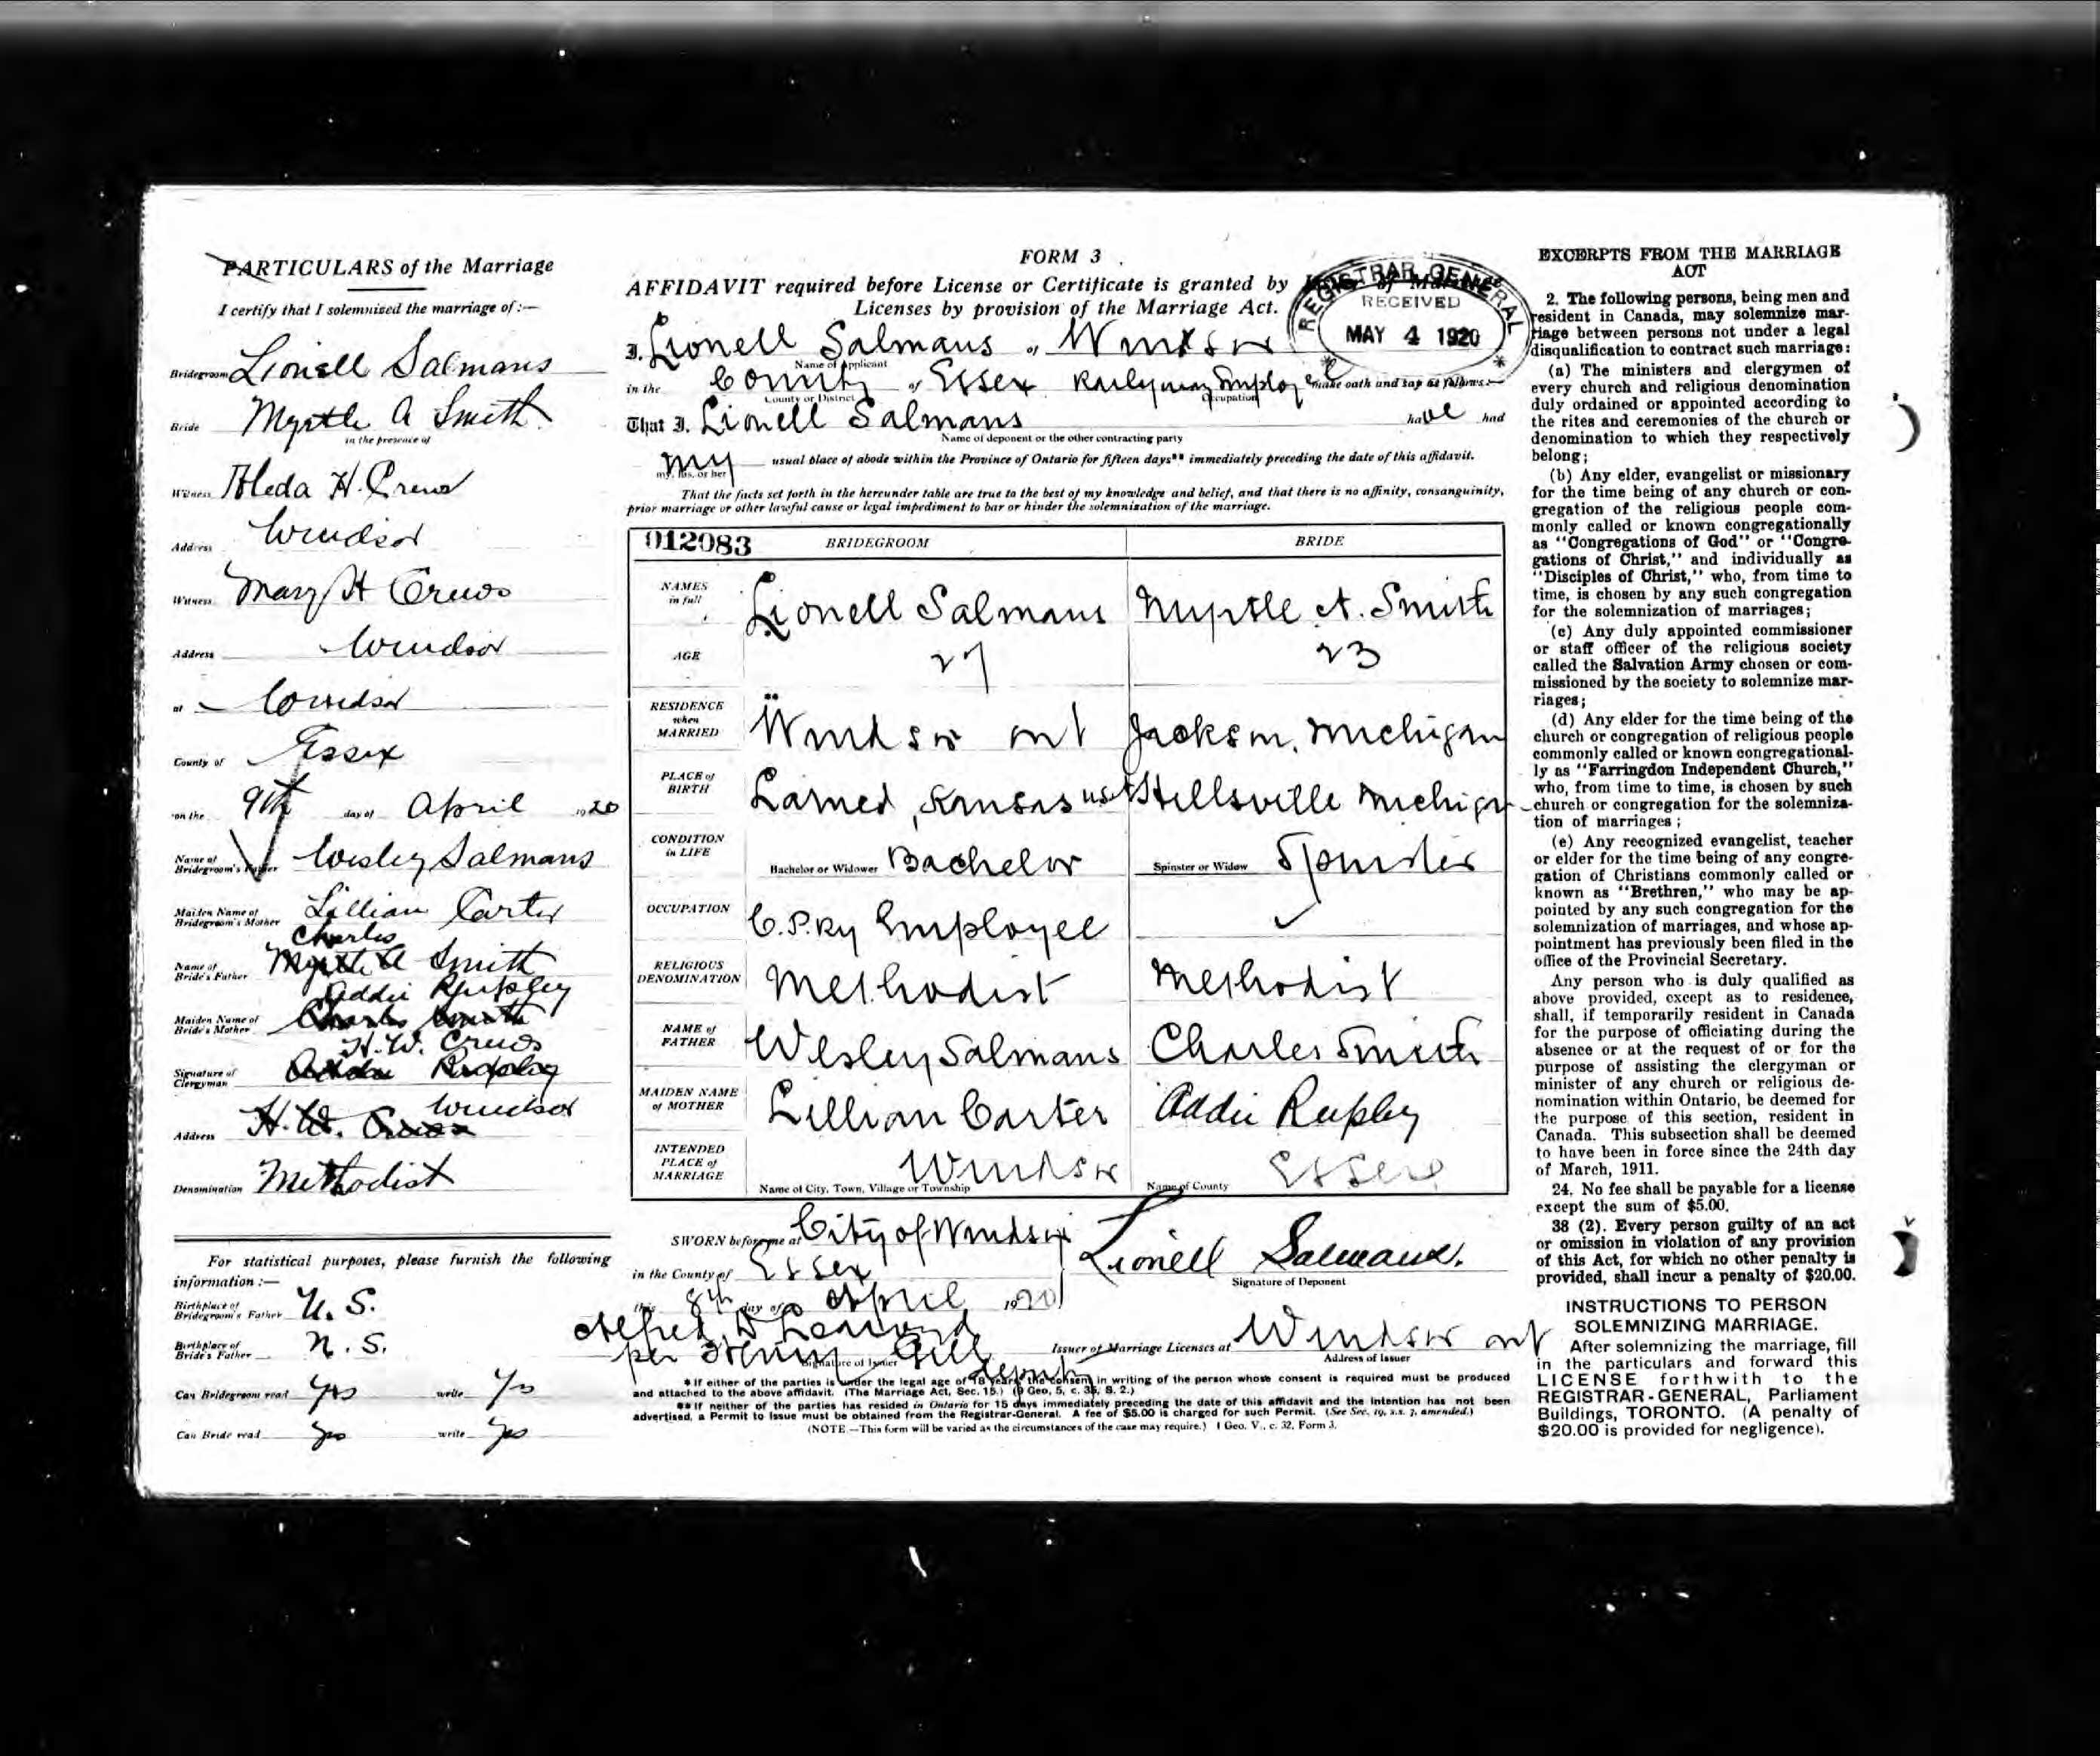 PARTICULARS of the Marriage
I certify that I solemnized the marriage of:—
Bridegroom Lionell Salmans
Bride Myrtle A Smith
in the presence of
Witness H. Crews
Address Windsor
Witness Mary H Crews
Address Windsor
at Windsor
County of Essex
on the 9th day of April 1920
Name of Bridegroom's Father Wesley Salmans
Maiden Name of Bridegroom's Mother Lillian Carter
Charles
Name of Bride's Father Myrtle A Smith
Addie Rupley
Maiden Name of Bride's Mother Charles Smith
H. W. Crews
Signature of Clergyman Addie Rupley
Windsor
Address H. W. Crews
Denomination Methodist
For statistical purposes, please furnish the following
information:—
Birthplace of Bridegroom's Father U. S.
Birthplace of Bride's Father N. S.
Can Bridegroom read Yes write Yes
Can Bride read Yes write Yes
FORM 3
AFFIDAVIT required before License or Certificate is granted by
Licenses by provision of the Marriage Act.
REGISTRAR GENERAL
RECEIVED
MAY 4 1920
I, Lionell Salmans of Windsor
Name of Applicant
in the County of Essex Railyway Employe make oath and say as follows:—
County or District Occupation
That I, Lionell Salmans have had
Name of deponent or the other contracting party
my usual place of abode within the Province of Ontario for fifteen days** immediately preceding the date of this affidavit.
my, his, or her
That the facts set forth in the hereunder table are true to the best of my knowledge and belief, and that there is no affinity, consanguinity,
prior marriage or other lawful cause or legal impediment to bar or hinder the solemnization of the marriage.
012083 BRIDEGROOM BRIDE
NAMES in full Lionell Salmans Myrtle A. Smith
AGE 27 23
RESIDENCE when MARRIED Windsor Ont Jackson, Michigan
PLACE of BIRTH Larned, Kansas USA Hillsville Michigan
CONDITION in LIFE Bachelor or Widower Bachelor Spinster or Widow Spinster
OCCUPATION C.P.Ry Employee
RELIGIOUS DENOMINATION Methodist Methodist
NAME of FATHER Wesley Salmans Charles Smith
MAIDEN NAME of MOTHER Lillian Carter Addie Rupley
INTENDED PLACE of MARRIAGE Windsor Essex
Name of City, Town, Village or Township Name of County
SWORN before me at City of Windsor
in the County of Essex
Lionell Salmans.
Signature of Deponent
this 8th day of April 1920
Alfred
per Gill
Signature of Issuer
Issuer of Marriage Licenses at Windsor Ont
Address of Issuer
* If either of the parties is under the legal age of 18 years, the consent in writing of the person whose consent is required must be produced
and attached to the above affidavit. (The Marriage Act, Sec. 15.) (9 Geo. 5, c. 35, S. 2.)
** If neither of the parties has resided in Ontario for 15 days immediately preceding the date of this affidavit and the intention has not been
advertised, a Permit to Issue must be obtained from the Registrar-General. A fee of $5.00 is charged for such Permit. (See Sec. 19, s.s. 7, amended.)
(NOTE.—This form will be varied as the circumstances of the case may require.) 1 Geo. V., c. 32, Form 3.
EXCERPTS FROM THE MARRIAGE
ACT
2. The following persons, being men and
resident in Canada, may solemnize mar-
riage between persons not under a legal
disqualification to contract such marriage:
(a) The ministers and clergymen of
every church and religious denomination
duly ordained or appointed according to
the rites and ceremonies of the church or
denomination to which they respectively
belong;
(b) Any elder, evangelist or missionary
for the time being of any church or con-
gregation of the religious people com-
monly called or known congregationally
as "Congregations of God" or "Congre-
gations of Christ," and individually as
"Disciples of Christ," who, from time to
time, is chosen by any such congregation
for the solemnization of marriages;
(c) Any duly appointed commissioner
or staff officer of the religious society
called the Salvation Army chosen or com-
missioned by the society to solemnize mar-
riages;
(d) Any elder for the time being of the
church or congregation of religious people
commonly called or known congregational-
ly as "Farringdon Independent Church,"
who, from time to time, is chosen by such
church or congregation for the solemniza-
tion of marriages;
(e) Any recognized evangelist, teacher
or elder for the time being of any congre-
gation of Christians commonly called or
known as "Brethren," who may be ap-
pointed by any such congregation for the
solemnization of marriages, and whose ap-
pointment has previously been filed in the
office of the Provincial Secretary.
Any person who is duly qualified as
above provided, except as to residence,
shall, if temporarily resident in Canada
for the purpose of officiating during the
absence or at the request of or for the
purpose of assisting the clergyman or
minister of any church or religious de-
nomination within Ontario, be deemed for
the purpose of this section, resident in
Canada. This subsection shall be deemed
to have been in force since the 24th day
of March, 1911.
24. No fee shall be payable for a license
except the sum of $5.00.
38 (2). Every person guilty of an act
or omission in violation of any provision
of this Act, for which no other penalty is
provided, shall incur a penalty of $20.00.
INSTRUCTIONS TO PERSON
SOLEMNIZING MARRIAGE.
After solemnizing the marriage, fill
in the particulars and forward this
LICENSE forthwith to the
REGISTRAR-GENERAL, Parliament
Buildings, TORONTO. (A penalty of
$20.00 is provided for negligence).